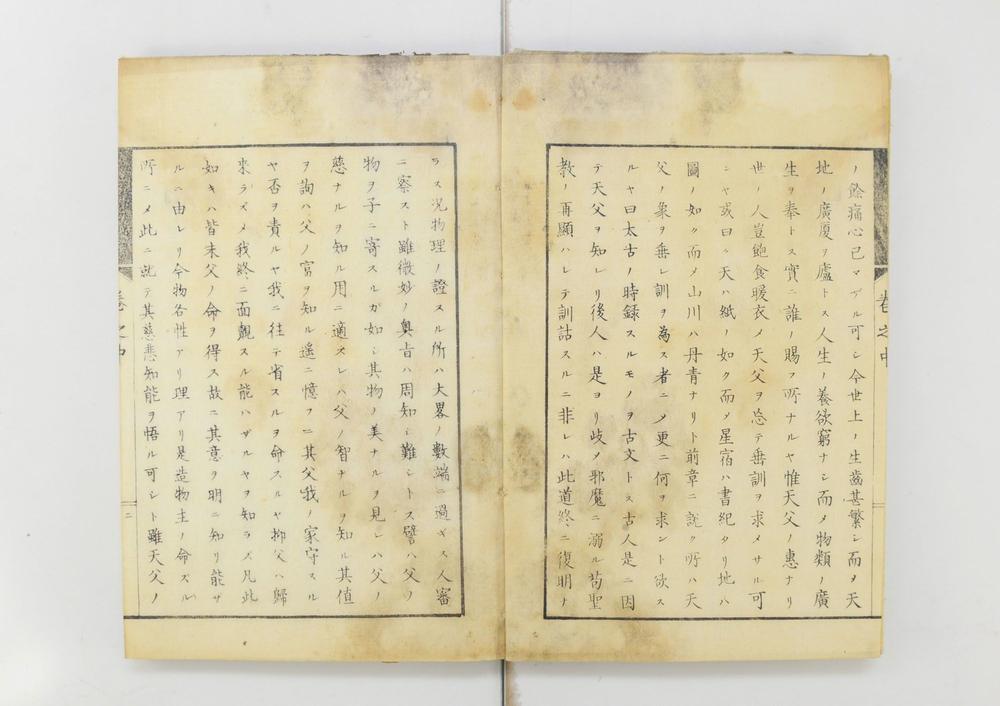 ノ餘痛心已マデル可シ今世上ノ生齒甚繁シ而ヲ天
地ノ廣厦ヲ廬トス人生ノ養欲窮ナシ而メ物類ノ廣
生ヲ奉トス實ニ誰ノ賜フ所ナルヤ惟天父ノ惠ナリ
世ノ人豈飽食暖衣メ天父ヲ忘テ垂訓ヲ求メサル可
シヤ或曰ク天ハ紙ノ如ク而メ星宿ハ書紀タリ地ハ
圖ノ如ク而メ山川ハ丹青ナリト前章ニ説ク所ハ天
父ノ象ヲ垂レ訓ヲ為ス者ニメ更ニ何ヲ求ント欲ス
ルヤ曰太古ノ時録スルモノヲ古文トス古人是ニ因
テ天父ヲ知レリ後人ハ是ヨリ歧メ邪魔ニ溺ル苟聖
教ノ再顯ハレテ訓詁スルニ非レハ此道終ニ復明ナ
卷之中
ラス况物理ノ證スル所ハ大畧ノ數端ニ過ギス人審
ニ察スト雖微妙ノ奥旨ハ周知シ難シトス譬ハ父ノ
物ヲ子ニ寄スルガ如シ其物ノ美ナルヲ見レハ父ノ
慈ナルヲ知ル用ニ適スレハ父ノ智ナルヲ知ル其値
ヲ詢ハ父ノ富ヲ知ル遥ニ憶フニ其父我ノ家守スル
ヤ否ヲ責ルヤ我ニ往テ省スルヲ命スルヤ抑父ハ歸
来ラズメ我終ニ面覿スル能ハザルヤヲ知ラズ凡此
如キハ皆未父ノ命ヲ得ス故ニ其意ヲ明ニ知リ能サ
ルニ由レリ今物各性アリ理アリ是造物主ノ命ズル
所ニメ此ニ就テ其慈悲知能ヲ悟ル可シト雖天父ノ
卷之中
二